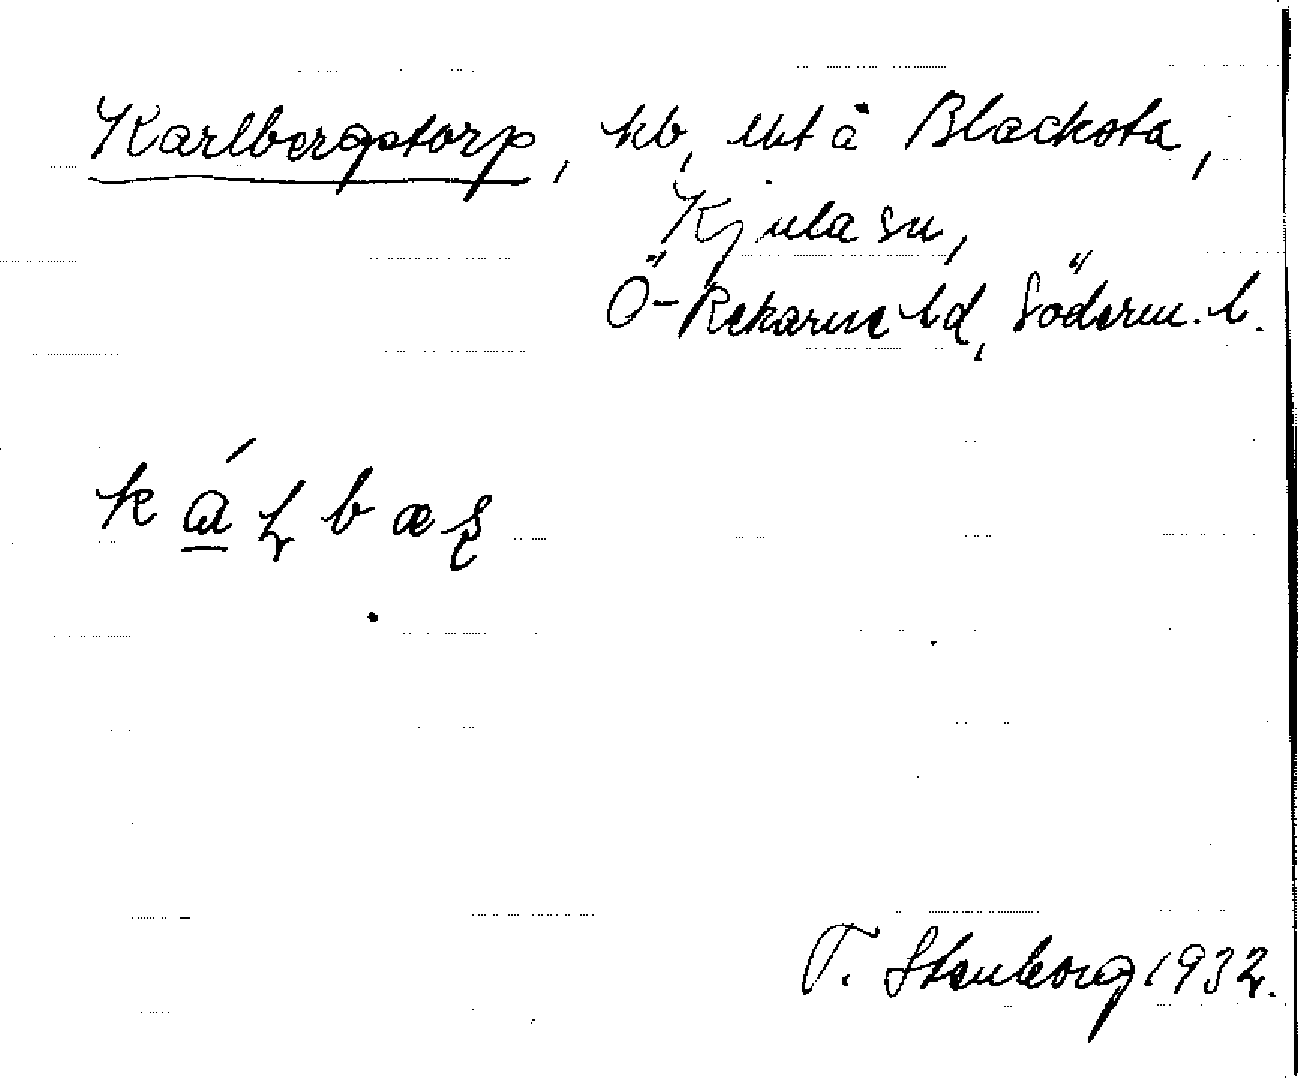 Karlbergstorp, kb, uht å Blacksta,
Kjula sn,
Ö-Rekarne hd, Söderm. l.
T. Stenborg 1932.